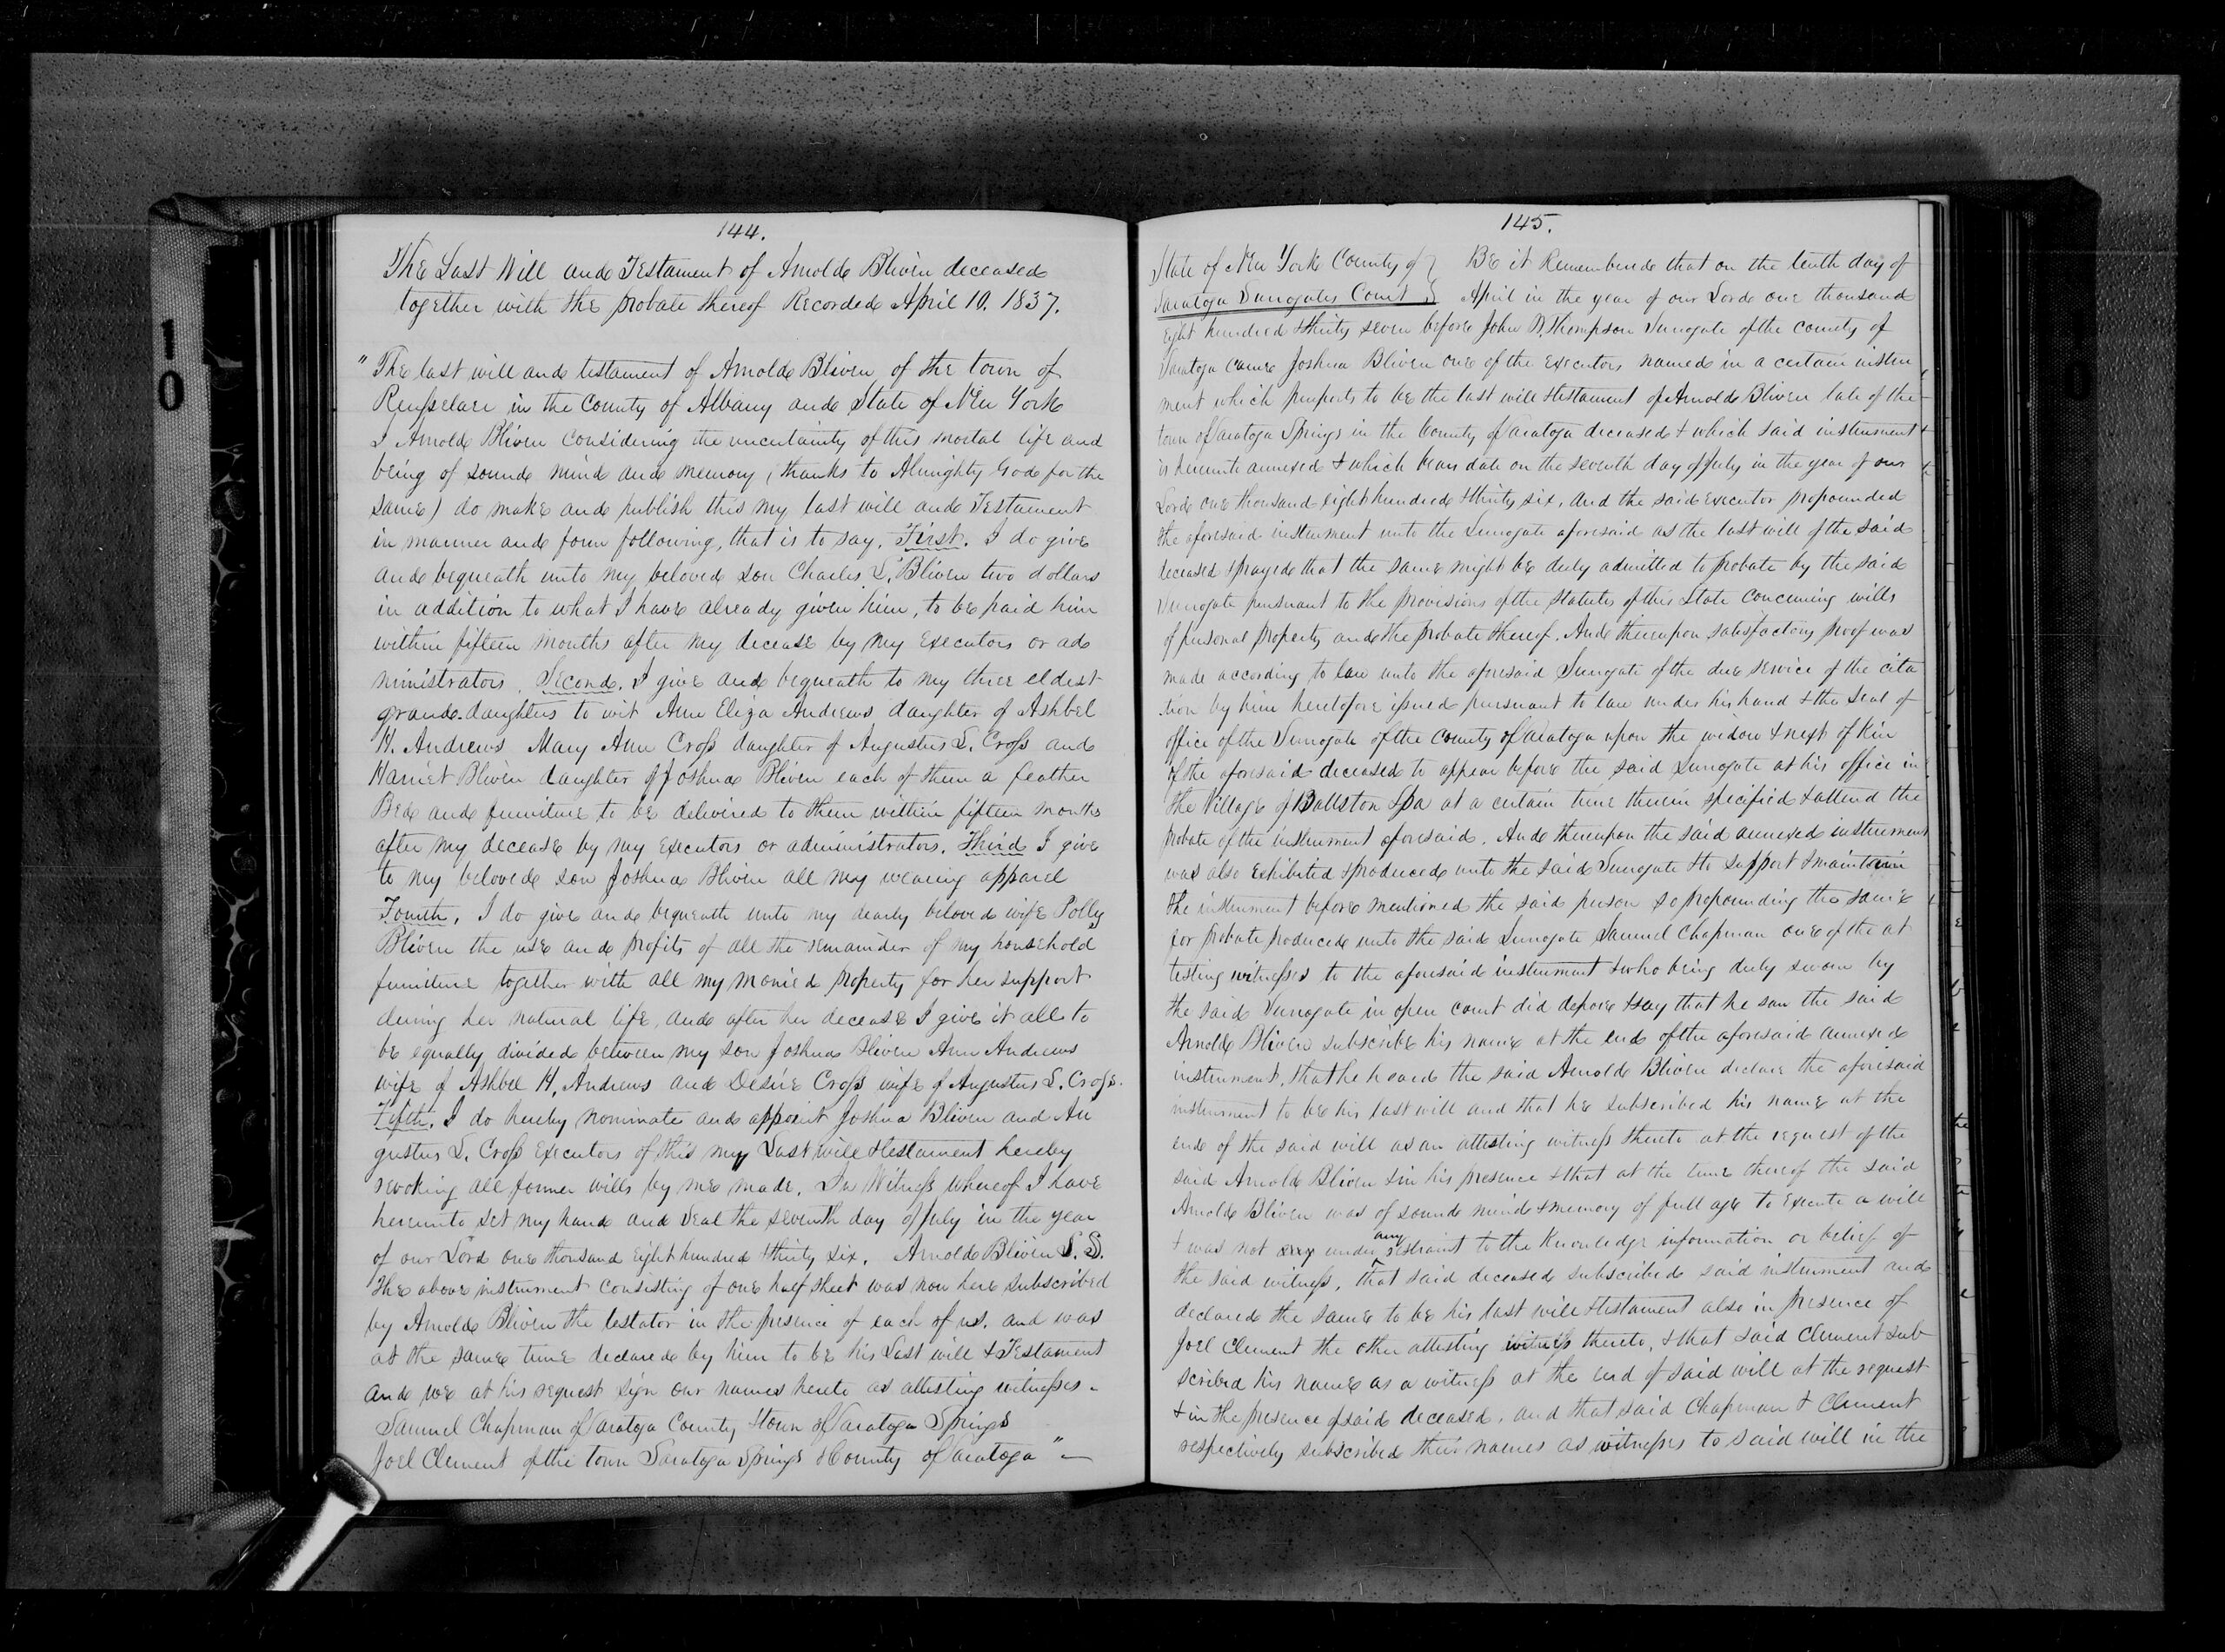 144.
The Last Will and Testament of Arnold Bliven deceased
together with the probate thereof Recorded April 10. 1837.
"The last will and testament of Arnold Bliven of the town of
Rensselaer in the County of Albany and State of New York
I Arnold Bliven considering the uncertainty of this mortal life and
being of sound mind and memory (thanks to Almighty God for the
same) do make and publish this my last will and Testament
in manner and form following, that is to say. First. I do give
and bequeath unto my beloved son Charles S. Bliven two dollars
in addition to what I have already given him, to be paid him
within fifteen months after my decease by my Executors or ad
ministrators. Second. I give and bequeath to my three eldest
grand-daughters to wit Ann Eliza Andrews daughter of Ashbel
H. Andrews Mary Ann Cross daughter of Augustus L. Cross and
Harriet Bliven daughter of Joshua Bliven each of them a feather
Bed and furniture to be delivered to them within fifteen months
after my decease by my Executors or administrators. Third I give
to my beloved son Joshua Bliven all my wearing apparel
Fourth. I do give and bequeath unto my dearly beloved wife Polly
Bliven the use and profits of all the remainder of my household
furniture together with all my monied property for her support
during her natural life, and after her decease I give it all to
be equally divided between my son Joshua Bliven Ann Andrews
wife of Ashbel H. Andrews and Desire Cross wife of Augustus L. Cross.
Fifth. I do hereby nominate and appoint Joshua Bliven and Au
gustus L. Cross Executors of this my Last will & testament hereby
revoking all former wills by me made. In Witness whereof I have
hereunto set my hand and seal the seventh day of July in the year
of our Lord one thousand eight hundred & thirty six. Arnold Bliven L.S.
The above instrument consisting of one half sheet was now here subscribed
by Arnold Bliven the testator in the presence of each of us. and was
at the same time declared by him to be his Last will & Testament
and we at his request sign our names hereto as attesting witnesses.
Samuel Chapman of Saratoga County & town of Saratoga Springs
Joel Clement of the town Saratoga Springs & County of Saratoga"
145.
State of New York County of } Be it Remembered that on the tenth day of
Saratoga Surrogates Court } April in the year of our Lord one thousand
Eight hundred & thirty seven before John W. Thompson Surrogate of the county of
Saratoga came Joshua Bliven one of the Executors named in a certain instru
ment which purports to be the last will & testament of Arnold Bliven late of the
town of Saratoga Springs in the County of Saratoga deceased & which said instrument
is hereunto annexed & which bears date on the seventh day of July in the year of our
Lord one thousand eight hundred & thirty six, and the said executor propounded
the aforesaid instrument unto the Surrogate aforesaid as the last will of the said
deceased & prayed that the same might be duly admitted to probate by the said
Surrogate pursuant to the provisions of the statutes of this State concerning wills
of personal property and the probate thereof. And thereupon satisfactory proof was
made according to law unto the aforesaid Surrogate of the due service of the cita
tion by him heretofore issued pursuant to law under his hand & the seal of
office of the Surrogate of the County of Saratoga upon the widow & next of Kin
of the aforesaid deceased to appear before the said Surrogate at his office in
the Village of Ballston Spa at a certain time therein specified & attend the
probate of the instrument aforesaid. And thereupon the said annexed instrument
was also Exhibited & produced unto the said Surrogate & to support & maintain
the instrument before mentioned the said person so propounding the same
for probate produced unto the said Surrogate Samuel Chapman one of the at
testing witnesses to the aforesaid instrument & who being duly sworn by
the said Surrogate in open court did depose & say that he saw the said
Arnold Bliven subscribe his name at the end of the aforesaid annexed
instrument, that he heard the said Arnold Bliven declare the aforesaid
instrument to be his last will and that he subscribed his name at the
end of the said will as an attesting witness thereto at the request of the
said Arnold Bliven & in his presence & that at the time thereof the said
Arnold Bliven was of sound mind & memory of full age to execute a will
& was not under any restraint to the Knowledge information or belief of
the said witness, that said deceased subscribed said instrument and
declared the same to be his last will & testament also in presence of
Joel Clement the other attesting witness thereto, & that said Clement sub
scribed his name as a witness at the end of said will at the request
& in the presence of said deceased, and that said Chapman & Clement
respectively subscribed their names as witnesses to said will in the
10